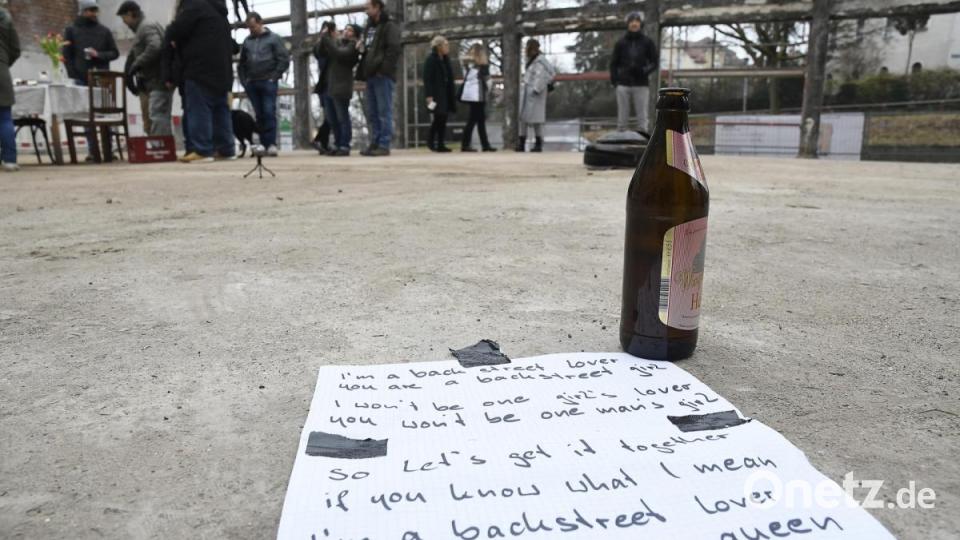 I'm a back street lover
you are a backstreet girl
I won't be one girl's lover
you won't be one man's girl
So Let's get it together
if you know what I mean
I'm a backstreet lover
queen
Onetz.de